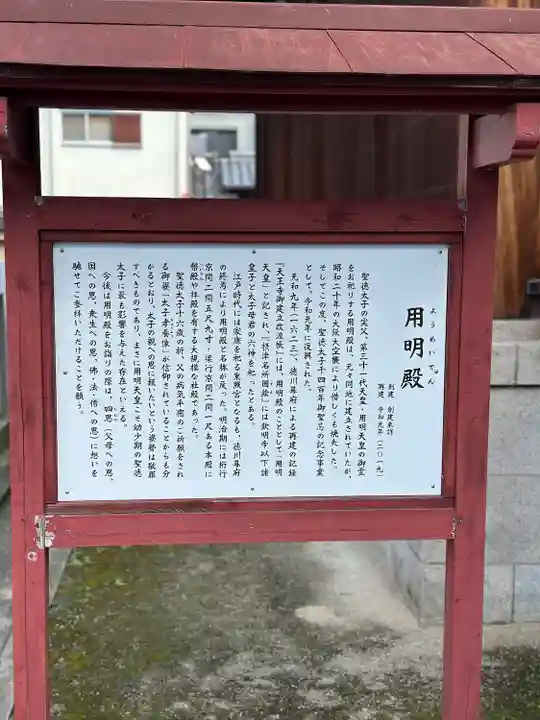 ようめいでん
用明殿
創建 創建未詳
再建 令和元年（二〇一九）
聖徳太子の実父・第三十一代天皇・用明天皇の御霊
をお祀りする用明殿は、元々同地に建立されていたが
昭和二十年の大阪大空襲により惜しくも焼失した。
そしてこの度、聖徳太子千四百年御聖忌の記念事業
として、令和元年に復興された。
元和九年（一六二三）、徳川幕府による再建の記録
『天王寺御建立改渡帳』には、用明殿のこととして「用明
天皇」と記され、『摂津名所図絵』には欽明帝以下諸
皇子と太子母君の六神を祀ったとある。
江戸時代には家康を祀る東照宮となるも、徳川幕府
の終焉により用明殿と名称が戻った。明治期には桁行
京間二間五尺九寸・梁行京間二間一尺ある本殿に
幣殿や拝殿を有する大規模な社殿であった。
聖徳太子十六歳の折、父の病気平癒のご祈願をされ
る御姿「太子孝養像」が信仰されていることからも分
かるとおり、太子の親への恩に報いたいという姿勢は敬服
すべきものであり、まさに用明天皇こそ幼少期の聖徳
太子に最も影響を与えた存在といえる。
今後は用明殿をお詣りの際は、四恩（父母への恩、
国への恩、衆生への恩、佛・法・僧への恩）に想いを
馳せてご参拝いただけることを願う。